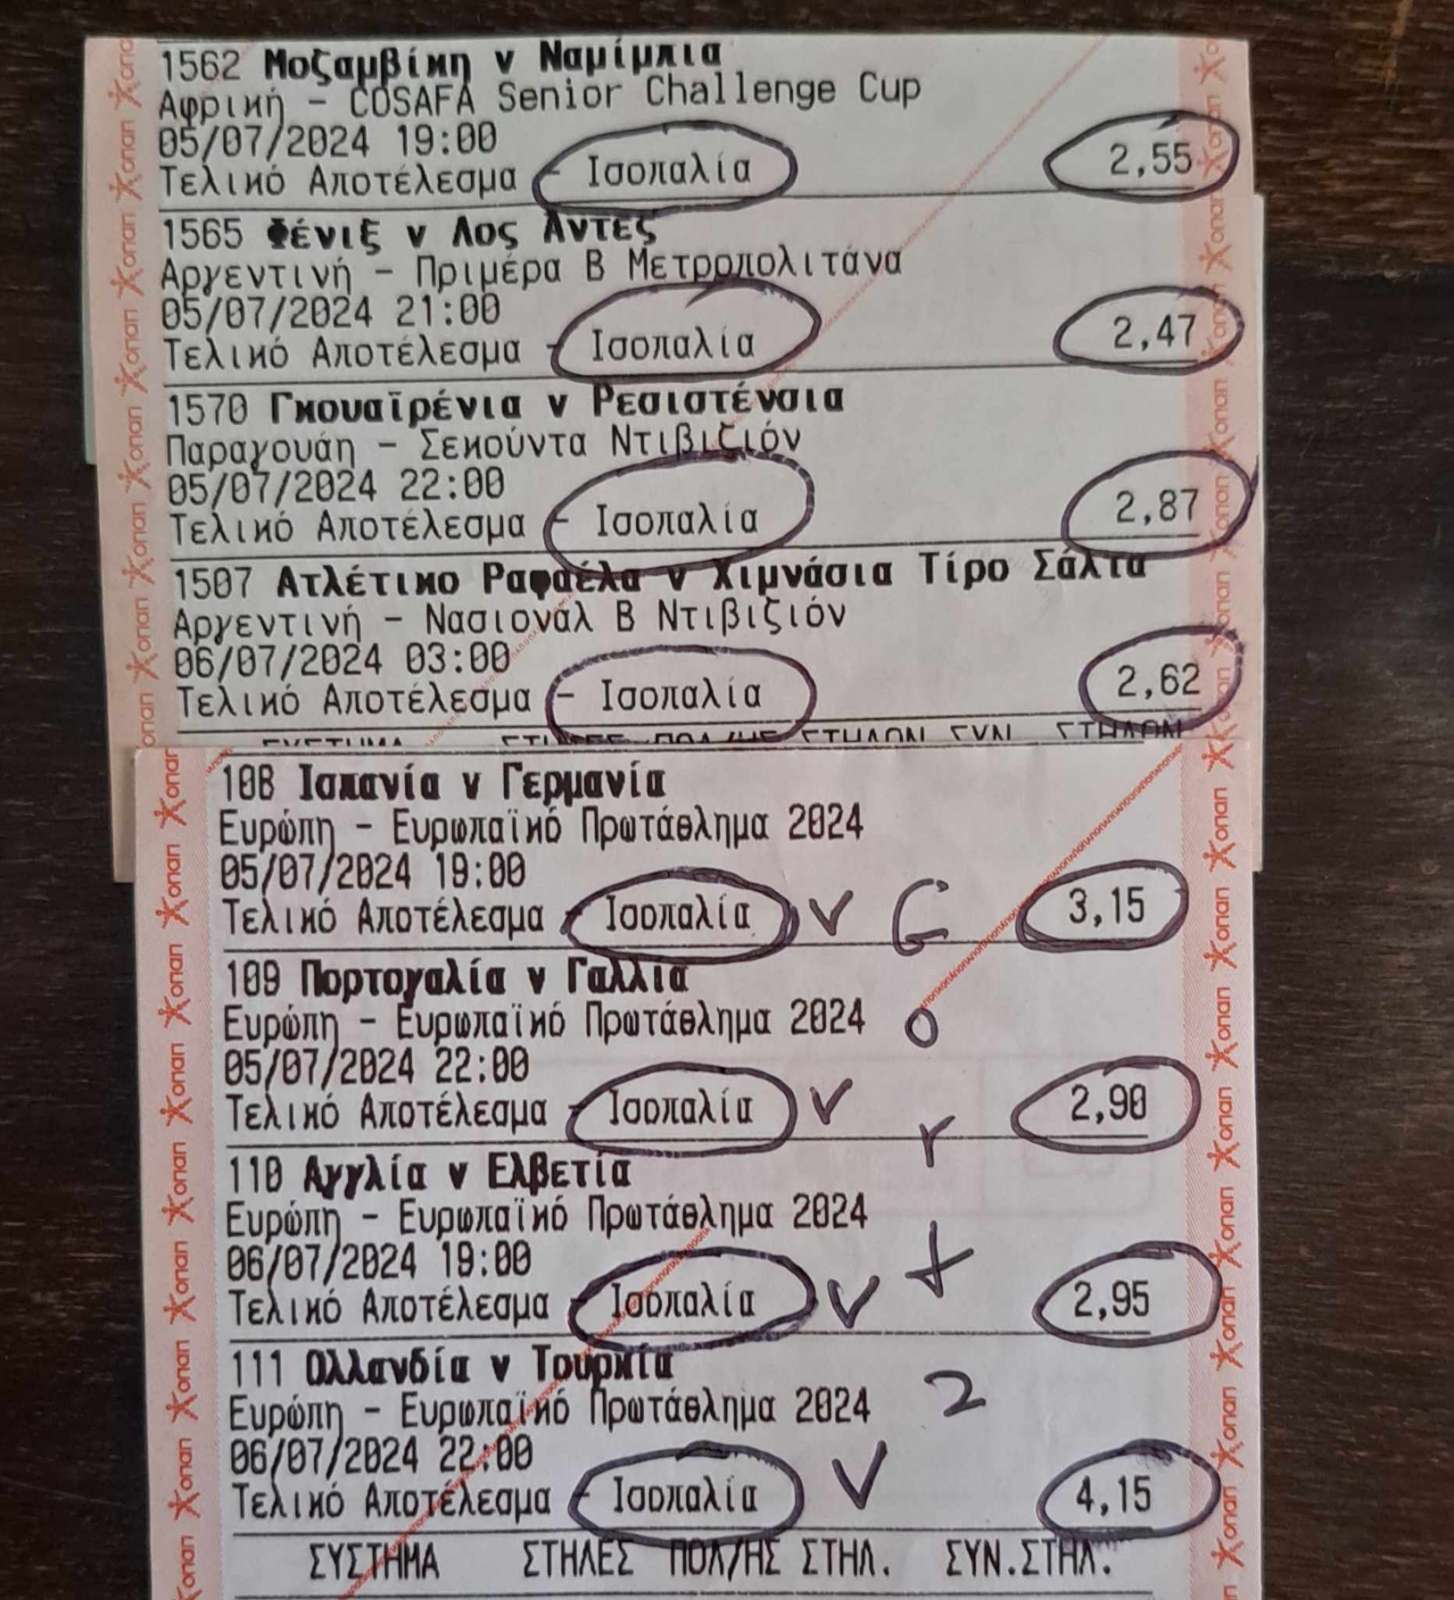 1562 Μοζαμβίκη v Ναμίμπια
Αφρική - COSAFA Senior Challenge Cup
05/07/2024 19:00
Τελικό Αποτέλεσμα - Ισοπαλία 2,55
1565 Φένιξ v Λος Άντες
Αργεντινή - Πριμέρα Β Μετροπολιτάνα
05/07/2024 21:00
Τελικό Αποτέλεσμα - Ισοπαλία 2,47
1570 Γκουαϊρένια v Ρεσιστένσια
Παραγουάη - Σεκούντα Ντιβιζιόν
05/07/2024 22:00
Τελικό Αποτέλεσμα - Ισοπαλία 2,87
1507 Ατλέτικο Ραφαέλα v Χιμνάσια Τίρο Σάλτα
Αργεντινή - Νασιονάλ Β Ντιβιζιόν
06/07/2024 03:00
Τελικό Αποτέλεσμα - Ισοπαλία 2,62
108 Ισπανία v Γερμανία
Ευρώπη - Ευρωπαϊκό Πρωτάθλημα 2024
05/07/2024 19:00
Τελικό Αποτέλεσμα - Ισοπαλία V G 3,15
109 Πορτογαλία v Γαλλία
Ευρώπη - Ευρωπαϊκό Πρωτάθλημα 2024 o
05/07/2024 22:00
Τελικό Αποτέλεσμα - Ισοπαλία V r 2,90
110 Αγγλία v Ελβετία
Ευρώπη - Ευρωπαϊκό Πρωτάθλημα 2024
06/07/2024 19:00 t
Τελικό Αποτέλεσμα - Ισοπαλία V 2,95
111 Ολλανδία v Τουρκία
Ευρώπη - Ευρωπαϊκό Πρωτάθλημα 2024 2
06/07/2024 22:00
Τελικό Αποτέλεσμα - Ισοπαλία V 4,15
ΣΥΣΤΗΜΑ ΣΤΗΛΕΣ ΠΟΛ/ΗΣ ΣΤΗΛ. ΣΥΝ.ΣΤΗΛ.